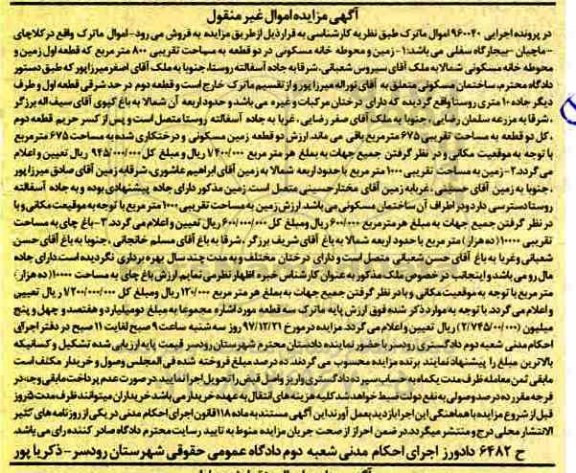 آگهی مزایده اموال غیر منقول
در پرونده اجرایی ۹۶۰۰۴۰ اموال ماترک طبق نظریه کارشناسی به قرار ذیل از طریق مزایده به فروش می رود-اموال ماترک واقع در کلاچای
-ماچیان -بیجارگاه سفلی می باشد:۱- زمین و محوطه خانه مسکونی در دو قطعه به مساحت تقریبی ۸۰۰ متر مربع که قطعه اول زمین و
محوطه خانه مسکونی شمالا به ملک آقای سیروس شعبانی، شرقا به جاده آسفالته روستا، جنوبا به ملک آقای اصغر میرزاپور که طبق دستور
دادگاه محترم، ساختمان مسکونی متعلق به آقای نوراله میرزا پور و از تقسیم ماترک خارج است و قطعه دوم در حد شرقی قطعه اول و طرف
دیگر جاده ۱۰ متری روستا واقع گردیده که دارای درختان مرکبات و غیره می باشد و حدود اربعه آن شمالا به باغ کیوی آقای سیف اله برزگر
، شرقا به مزرعه سلمان رضایی ، جنوبا به ملک آقای صفر رضایی ، غربا به جاده آسفالته روستا متصل است و پس از کسر حریم قطعه دوم
، کل دو قطعه به مساحت تقریبی ۶۷۵ متر مربع باقی می ماند. ارزش دو قطعه زمین مسکونی و درختکاری شده به مساحت ۶۷۵ متر مربع
با توجه به موقعیت مکانی و در نظر گرفتن جمیع جهات به مبلغ هر متر مربع ۱/۴۰۰/۰۰۰ ریال و مبلغ کل ۹۴۵/۰۰۰/۰۰۰ ریال تعیین و اعلام
می گردد.۲- زمین به مساحت تقریبی ۱۰۰۰ متر مربع با حدود اربعه شمالا به زمین آقای ابراهیم عاشوری، شرقا به زمین آقای صادق میرزاپور
، جنوبا به زمین آقای حسینی ، غربا به زمین آقای مختار حسینی متصل است. زمین مذکور دارای جاده پیشنهادی بوده و به جاده آسفالته
روستا دسترسی دارد و در اطراف آن ساختمان مسکونی می باشد. ارزش زمین به مساحت تقریبی ۱۰۰۰ متر مربع با توجه به موقعیت مکانی و با
در نظر گرفتن جمیع جهات به مبلغ هر متر مربع ۶۰۰/۰۰۰ ریال و مبلغ کل ۶۰۰/۰۰۰/۰۰۰ ریال تعیین و اعلام می گردد.۳- باغ چای به مساحت
تقریبی ۱۰۰۰۰(ده هزار) متر مربع با حدود اربعه شمالا به باغ آقای شریف برزگر ، شرقا به باغ آقای مسلم خانجانی ، جنوبا به باغ آقای حسن
شعبانی و غربا به باغ آقای حسن شعبانی متصل است و دارای درختان مختلف و به مدت چند سال بهره برداری نگردیده است.دارای جاده
مال رو می باشد و اینجانب در خصوص ملک مذکور به عنوان کارشناس خبره اظهار نظر می نمایم ارزش باغ چای به مساحت ۱۰۰۰۰(ده هزار)
متر مربع با توجه به موقعیت مکانی و با در نظر گرفتن جمیع جهات به مبلغ هر متر مربع ۱۲۰/۰۰۰ ریال و مبلغ کل ۱/۲۰۰/۰۰۰/۰۰۰ ریال تعیین
و اعلام می گردد. با توجه به موارد ذکر شده فوق ارزش پایه ماترک سه قطعه مورد اشاره مجموعا به مبلغ دو میلیارد و هفتصد و چهل و پنج
میلیون (۲/۷۴۵/۰۰۰/۰۰۰) ریال تعیین و اعلام می گردد. مزایده در مورخ ۹۷/۱۲/۲۱ روز سه شنبه ساعت ۹ صبح لغایت ۱۱ صبح در دفتر اجرای
احکام مدنی شعبه دوم دادگستری رودسر با حضور نماینده دادستان محترم شهرستان رودسر قیمت پایه ارزیابی شده تشکیل و کسانیکه
بالاترین مبلغ را پیشنهاد نمایند برنده مزایده محسوب می گردند. ده درصد مبلغ فروخته شده فی المجلس وصول و خریدار مکلف است
مابقی ثمن معامله ظرف مدت یکماه به حساب سپرده دادگستری واریز و اصل فیش را تحویل اجرا نمایید در صورت عدم پرداخت مابقی وجه، در
فرجه مقرر ده درصد وصولی به نفع دولت ضبط خواهد شد.کلیه هزینه های انتقال به عهده خریدار می باشد.خریداران میتوانند ظرف مدت ۵ روز
قبل از شروع مزایده با هماهنگی این اجرا بازدید بعمل آورند.این آگهی مستند به ماده ۱۱۸ قانون اجرای احکام مدنی در یکی از روزنامه های کثیر
الانتشار محلی درج و منتشر میگردد.در ضمن احراز از صحت جریان مزایده منوط به تایید رسایت محترم دادگاه صادر کننده رای می باشد.
ح ۶۴۸۲ دادورز اجرای احکام مدنی شعبه دوم دادگاه عمومی حقوقی شهرستان رودسر-ذکریا پور